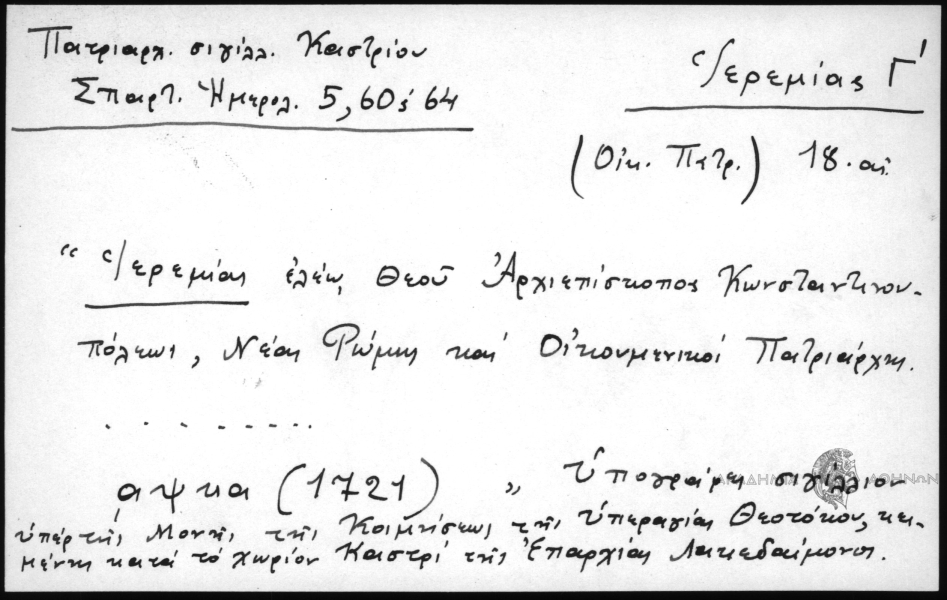 Πατριαρχ. σιγίλλ. Καστρίου
Σπαρτ. Ἡμερολ. 5, 60 ἑ 64
Ἱερεμίας Γ'
(Οἰκ. Πατρ.) 18. αἰ.
“ Ἱερεμίας ἐλέῳ Θεοῦ Ἀρχιεπίσκοπος Κωνσταντινου-
πόλεως, Νέας Ρώμης καὶ Οἰκουμενικός Πατριάρχης.
. . . . . . . . .
͵αψκα (1721) „ Ὑπογράφει σιγίλλιον
ὑπέρ τῆς Μονῆς τῆς Κοιμήσεως τῆς Ὑπεραγίας Θεοτόκου, κει-
μένης κατά τό χωρίον Καστρί τῆς Ἐπαρχίας Λακεδαίμονος.
ΑΚΑΔΗΜΙΑ ΑΘΗΝΩΝ